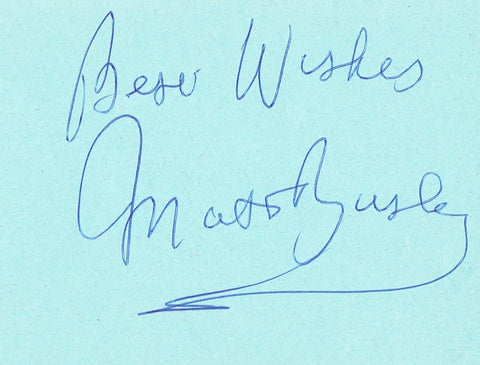 Best Wishes
Matt Busby